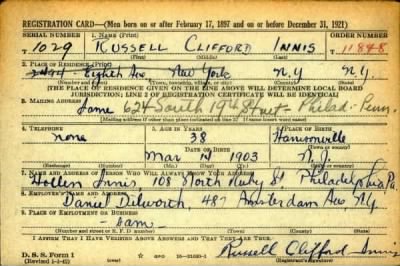 REGISTRATION CARD—(Men born on or after February 17, 1897 and on or before December 31, 1921)
SERIAL NUMBER 1. NAME (Print) ORDER NUMBER
T 1029 RUSSELL CLIFFORD INNIS T 11848
(First) (Middle) (Last)
2. PLACE OF RESIDENCE (Print)
Eighth Ave New York N.Y N.Y.
[THE PLACE OF RESIDENCE GIVEN ON THE LINE ABOVE WILL DETERMINE LOCAL BOARD
JURISDICTION; LINE 2 OF REGISTRATION CERTIFICATE WILL BE IDENTICAL]
3. MAILING ADDRESS
Same 624 South 19th Street Philad. Penn.
[Mailing address if other than place indicated on line 2. If same insert word same]
4. TELEPHONE 5. AGE IN YEARS 6. PLACE OF BIRTH
none 38 Harrisonville
DATE OF BIRTH
Mar 14 1903 N.J.
(Exchange) (Number) (Mo.) (Day) (Yr.) (State or country)
7. NAME AND ADDRESS OF PERSON WHO WILL ALWAYS KNOW YOUR ADDRESS
Innis 108 North Ruby St, Philadelphia Pa.
8. EMPLOYER'S NAME AND ADDRESS
Daniel Dilworth, 487 Amsterdam Ave, Ny.
9. PLACE OF EMPLOYMENT OR BUSINESS
Sam
(Number and street or R. F. D. number) (Town) (County) (State)
I AFFIRM THAT I HAVE VERIFIED ABOVE ANSWERS AND THAT THEY ARE TRUE.
D. S. S. Form 1
(Revised 1-1-42) (over) GPO 16—21630-1
Russell Clifford Innis